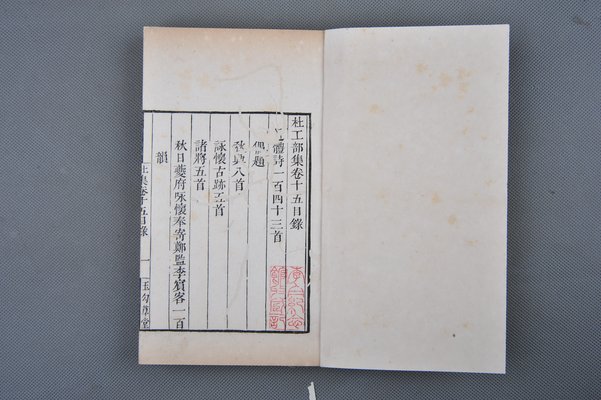 杜工部集卷十五目錄
近體詩一百四十三首
偶題
秋興八首
詠懷古跡五首
諸將五首
秋日夔府咏懷奉寄鄭監李賓客一百
韻
杜集卷十五目錄 一 玉勾草堂